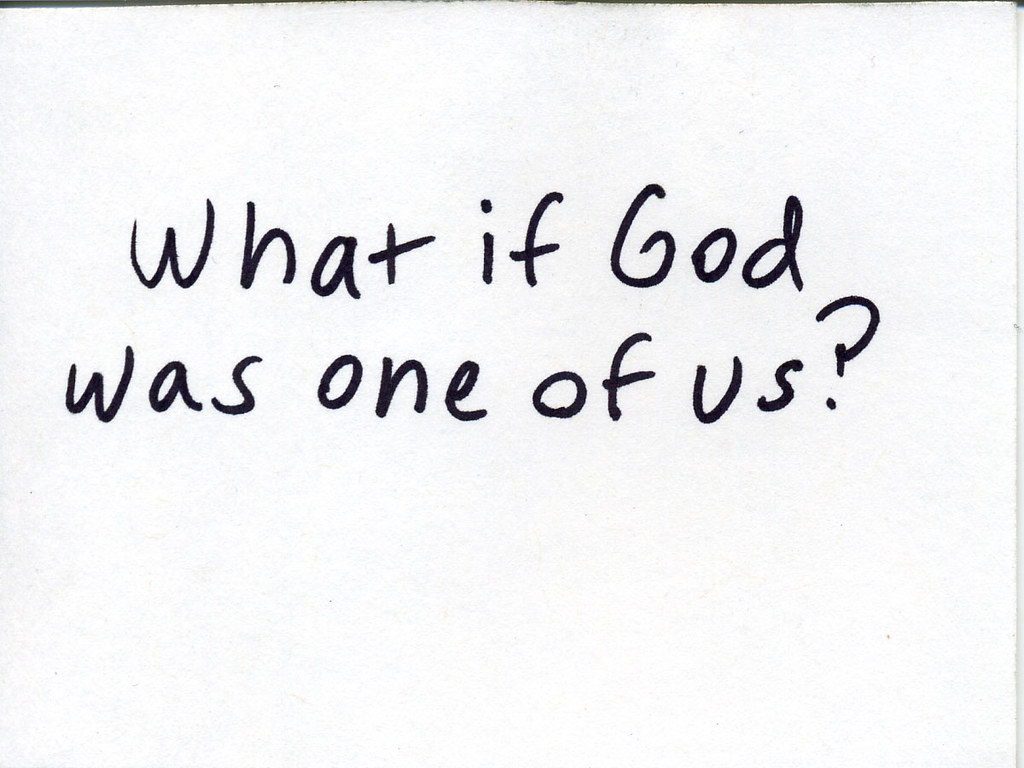 What if God
was one of us?